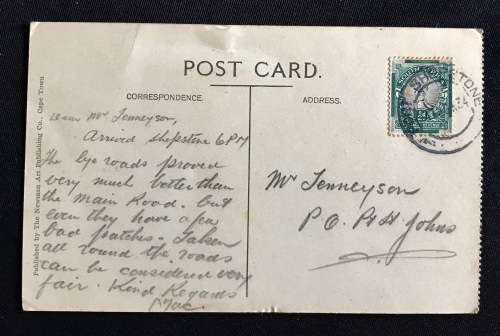 POST CARD.
CORRESPONDENCE.
ADDRESS.
Dear Mr Tenneyson,
Arrived Shepstone 6 PM
The bye roads proved
very much better than
the main Road. but
even they have a few
bad patches. Taken
all round the roads
can be considered very
fair. Kind Regards
Mac.
Mr Tenneyson
P.O. Pt St. Johns
Published by The Newman Art Publishing Co. Cape Town